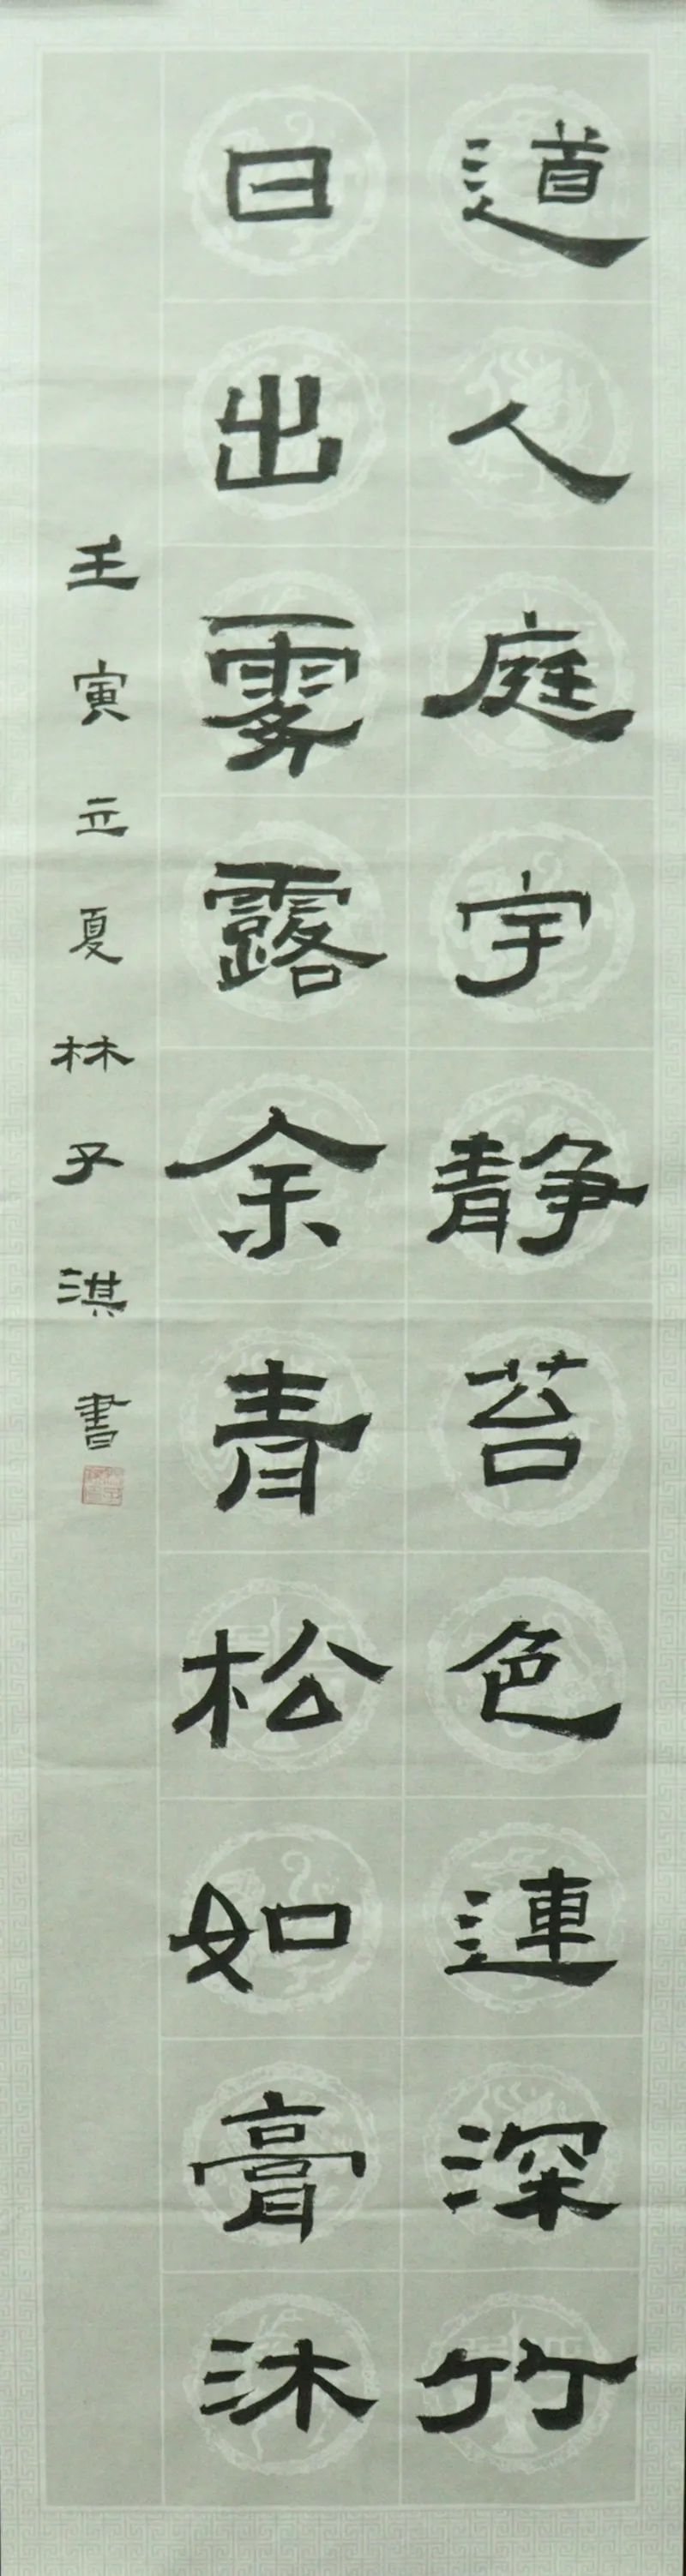 道人庭宇静苔色連深竹
日出霧露余青松如膏沐
壬寅立夏林子淇書